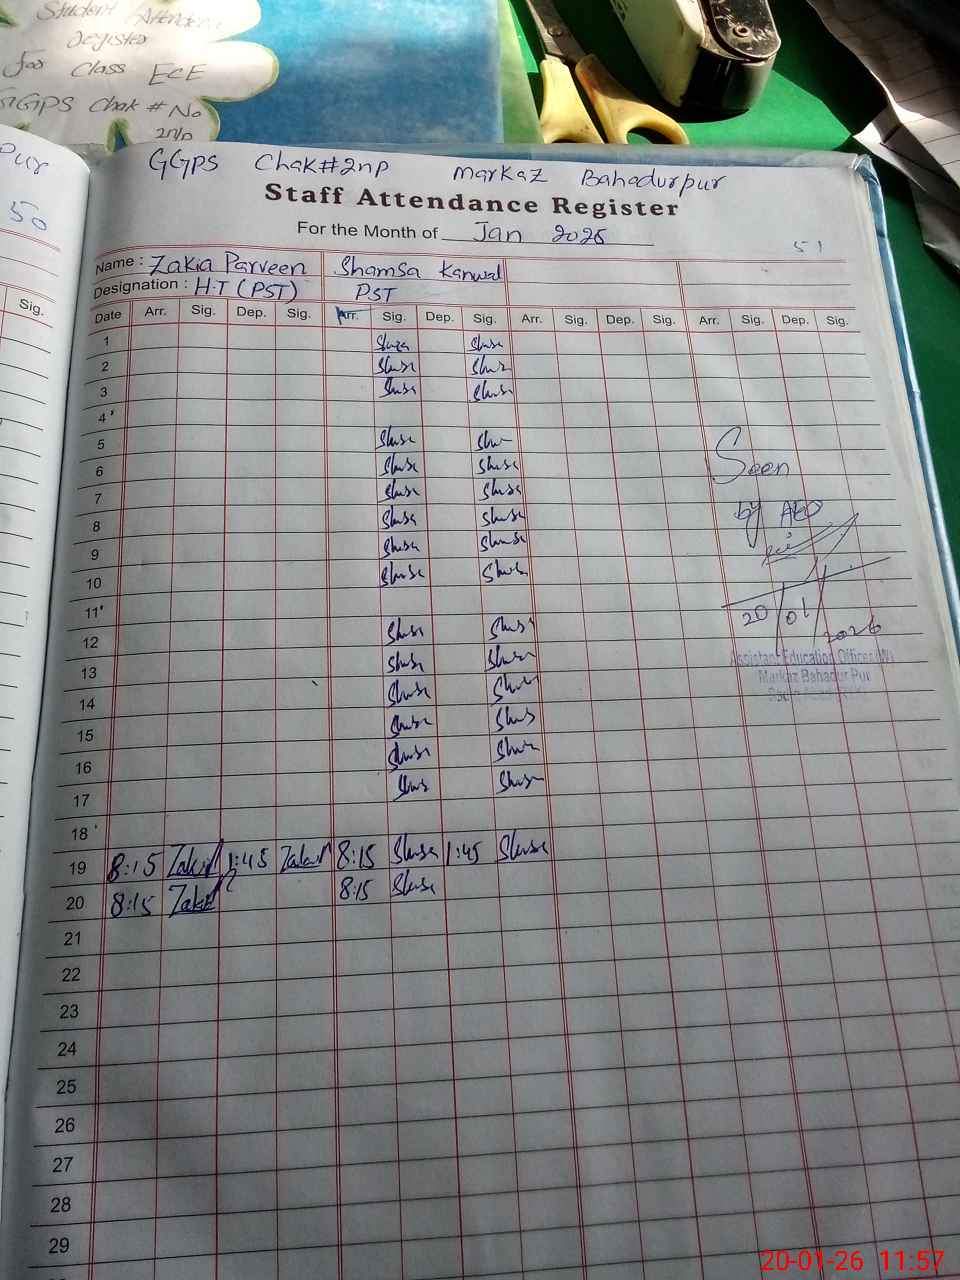 Student Attendence
Register
for Class ECE
GGPS Chak # No
2n/p
pur
50
Sig.
GGPS Chak#2np Markaz Bahadurpur
Staff Attendance Register
For the Month of Jan 2026
51
Name : Zakia Parveen Shamsa Kanwal
Designation : H.T (PST) PST
Date Arr. Sig. Dep. Sig. Arr. Sig. Dep. Sig. Arr. Sig. Dep. Sig. Arr. Sig. Dep. Sig.
1 Shmsa Shmsa
2 Shmsa Shmsa
3 Shmsa Shmsa
4
5 Shmsa Shmsa
6 Shmsa Shmsa
7 Shmsa Shmsa
8 Shmsa Shmsa
9 Shmsa Shmsa
10 Shmsa Shmsa
11
12 Shmsa Shmsa
13 Shmsa Shmsa
14 Shmsa Shmsa
15 Shmsa Shmsa
16 Shmsa Shmsa
17 Shmsa Shmsa
18
19 8:15 Zakia 1:45 Zakia 8:15 Shmsa 1:45 Shmsa
20 8:15 Zakia 8:15 Shmsa
21
22
23
24
25
26
27
28
29
Seen
by AEO
20/01/2026
Assistant Education Officer (W)
Markaz Bahadur Pur
20-01-26 11:57